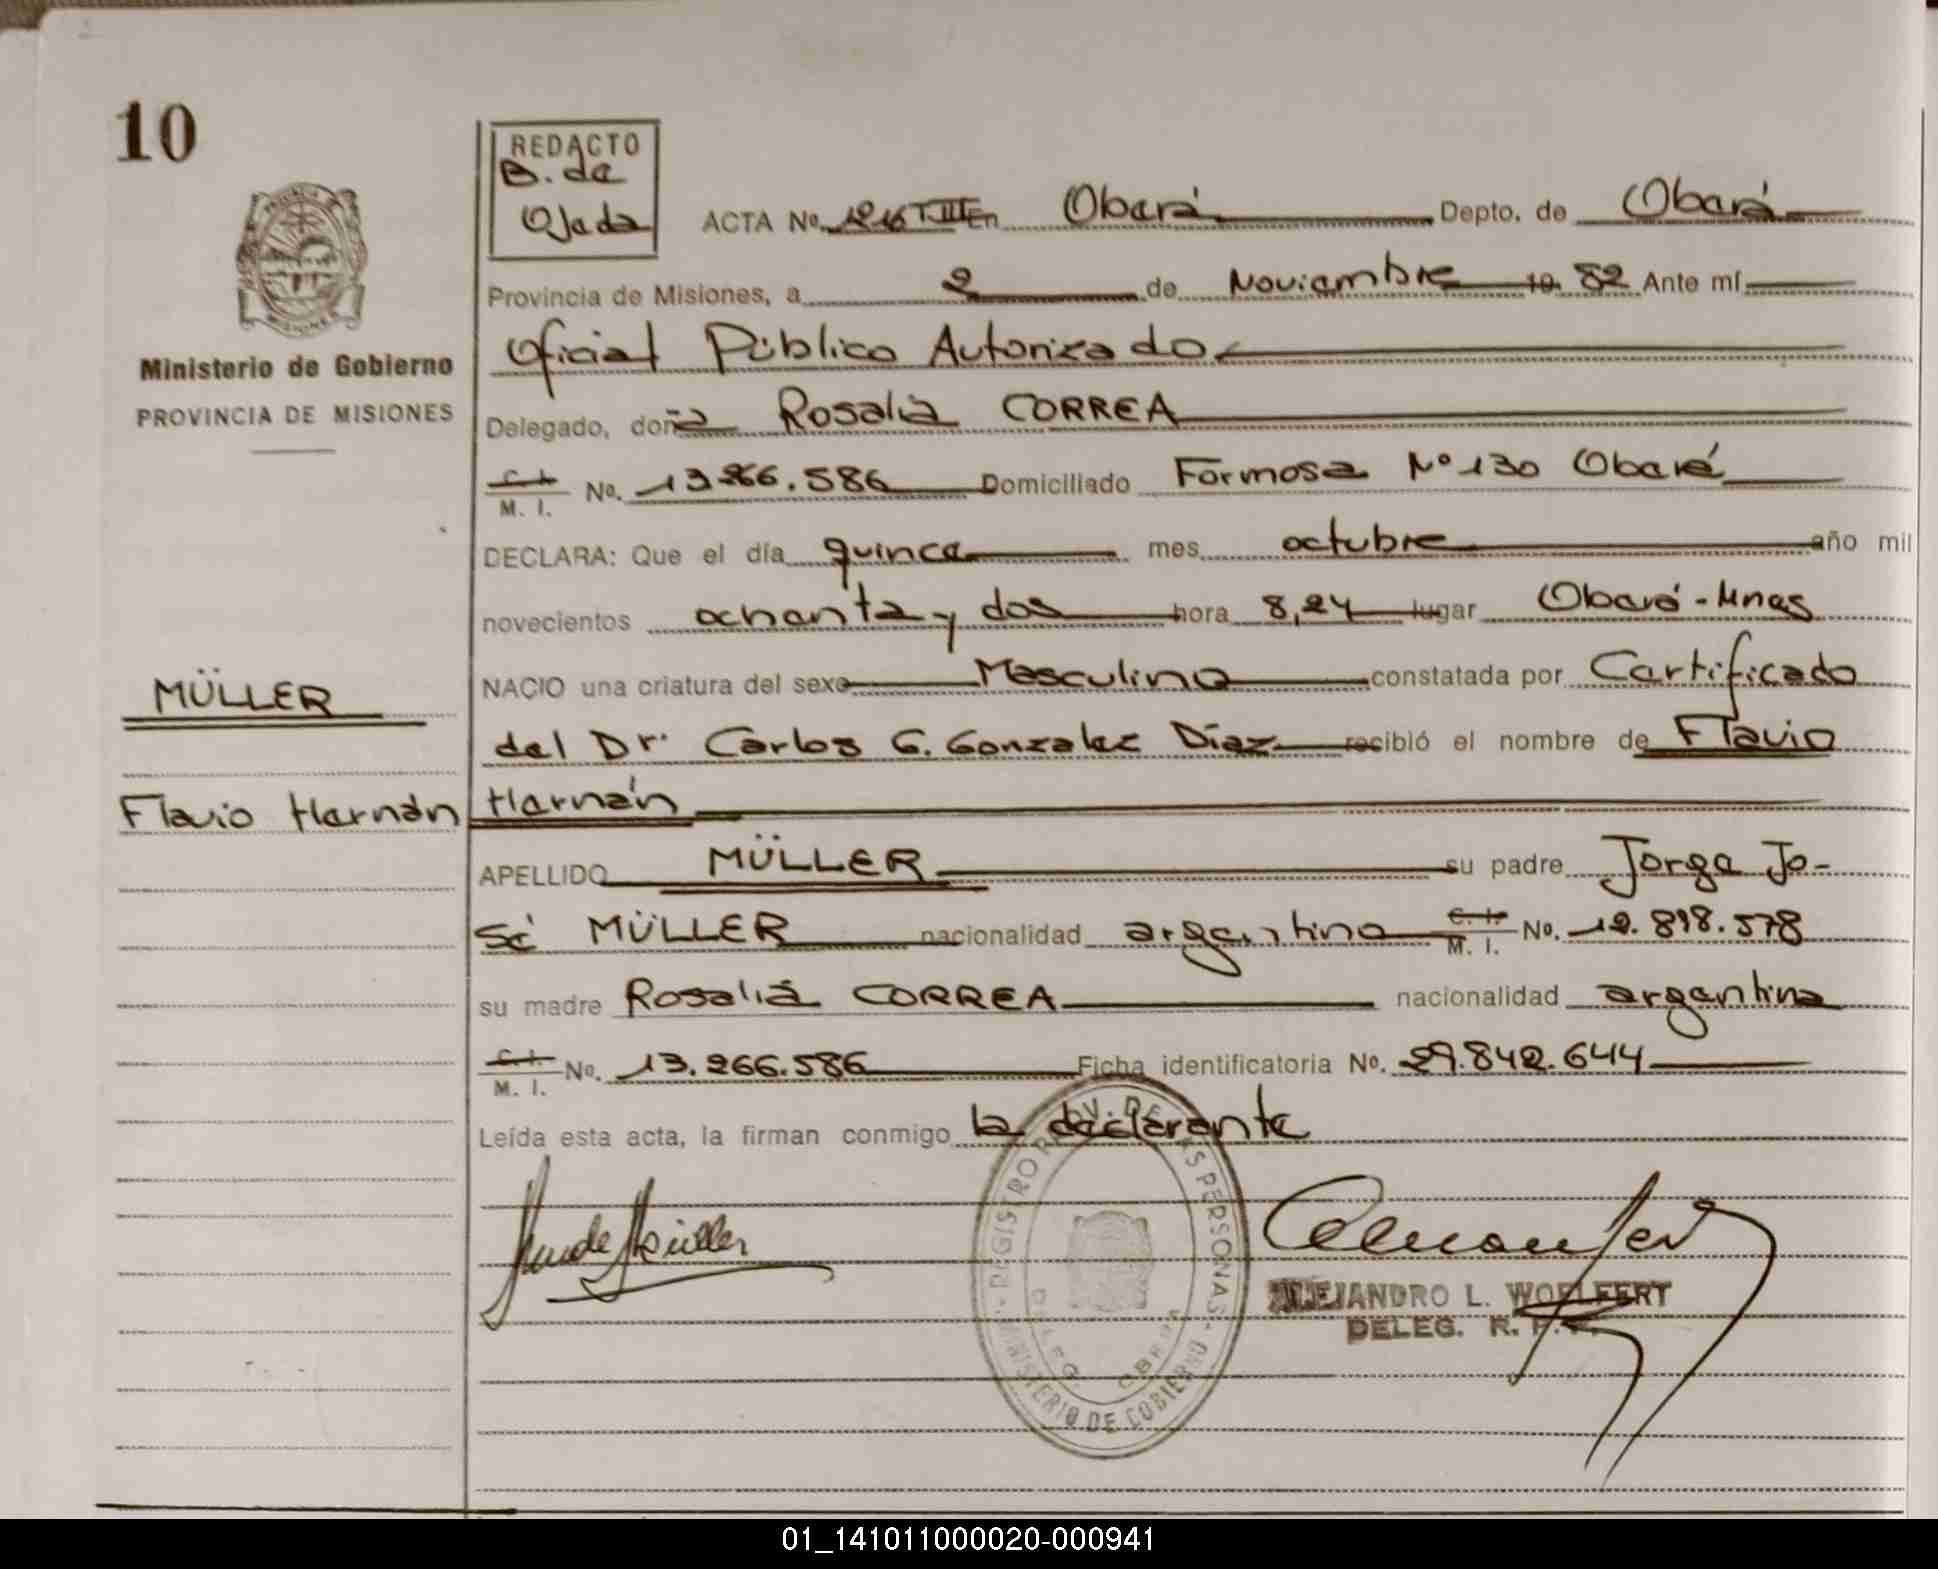 10
REDACTO
B. de
Ojeda
ACTA No. 1216 T.III En Oberá Depto. de Oberá
Provincia de Misiones, a 2 de Noviembre 19 82 Ante mí
Oficial Público Autorizado
Ministerio de Gobierno
PROVINCIA DE MISIONES
Delegado, doña Rosalia CORREA
C. I.
M. I. No. 13.266.586 Domiciliado Formosa Nº 130 Oberá
DECLARA: Que el día quince mes octubre año mil
novecientos ochenta y dos hora 8,24 lugar Oberá - Mnes
NACIO una criatura del sexo Masculino constatada por Certificado
MÜLLER
del Dr. Carlos G. Gonzalez Díaz recibió el nombre de Flavio
Flavio Hernán
Hernán
APELLIDO MÜLLER su padre Jorge Jo-
sé MÜLLER nacionalidad argentino C. I.
M. I. No. 12.898.578
su madre Rosaliá CORREA nacionalidad argentina
C. I.
M. I. No. 13.266.586 Ficha identificatoria No. 29.842.644
Leída esta acta, la firman conmigo la declarante
REGISTRO PROV. DE LAS PERSONAS - MINISTERIO DE GOBIERNO
DELEG. OBERA
ALEJANDRO L. WOELFERT
DELEG. R. P. P.
01_141011000020-000941